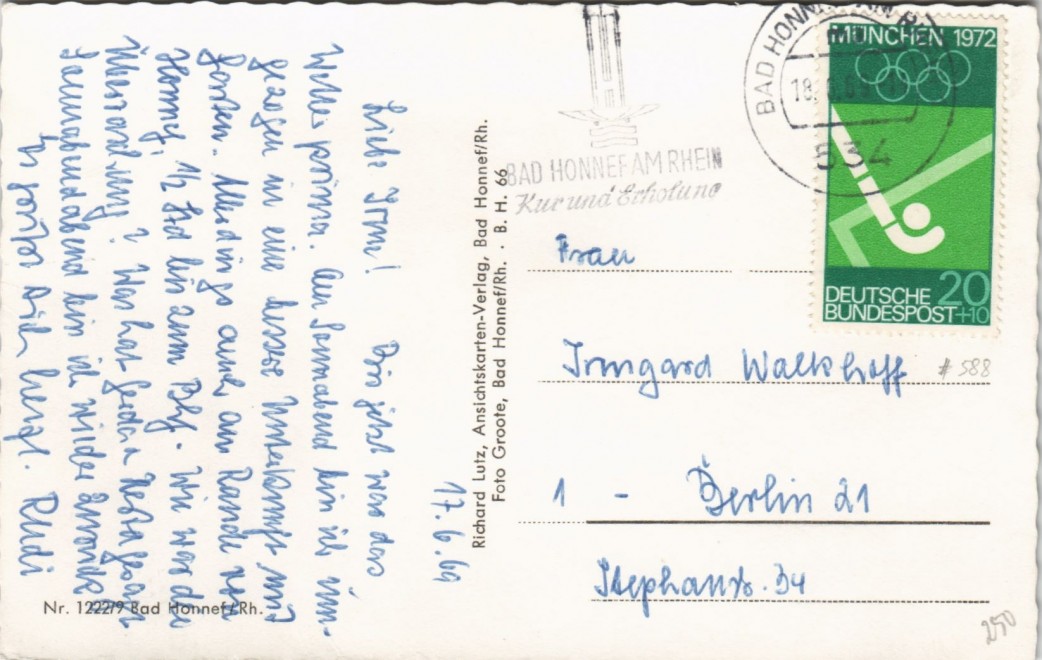 17.6.69
Liebe Irm! Bis jetzt war das
Wetter prima. Am Sonnabend bin ich um-
gezogen in eine bessere Unterkunft mit
Garten. Allerdings auch am Rande von
Honnef, 1/2 Std bis zum Bhf. Wie war die
Überraschung? Was hat gesagt
Sonnabend bin ich wieder
Es grüßt Dich herzl. Rudi
Nr. 1222/9 Bad Honnef/Rh.
Richard Lutz, Ansichtskarten-Verlag, Bad Honnef/Rh.
Foto Groote, Bad Honnef/Rh. · B. H. 66
BAD HONNEF AM RHEIN
Kur und Erholung
BAD HONNEF AM RHEIN
18.
534
MÜNCHEN 1972
20
DEUTSCHE
BUNDESPOST +10
Frau
Irmgard Walkhoff
# 588
1 - Berlin 21
Stephanstr. 34
250